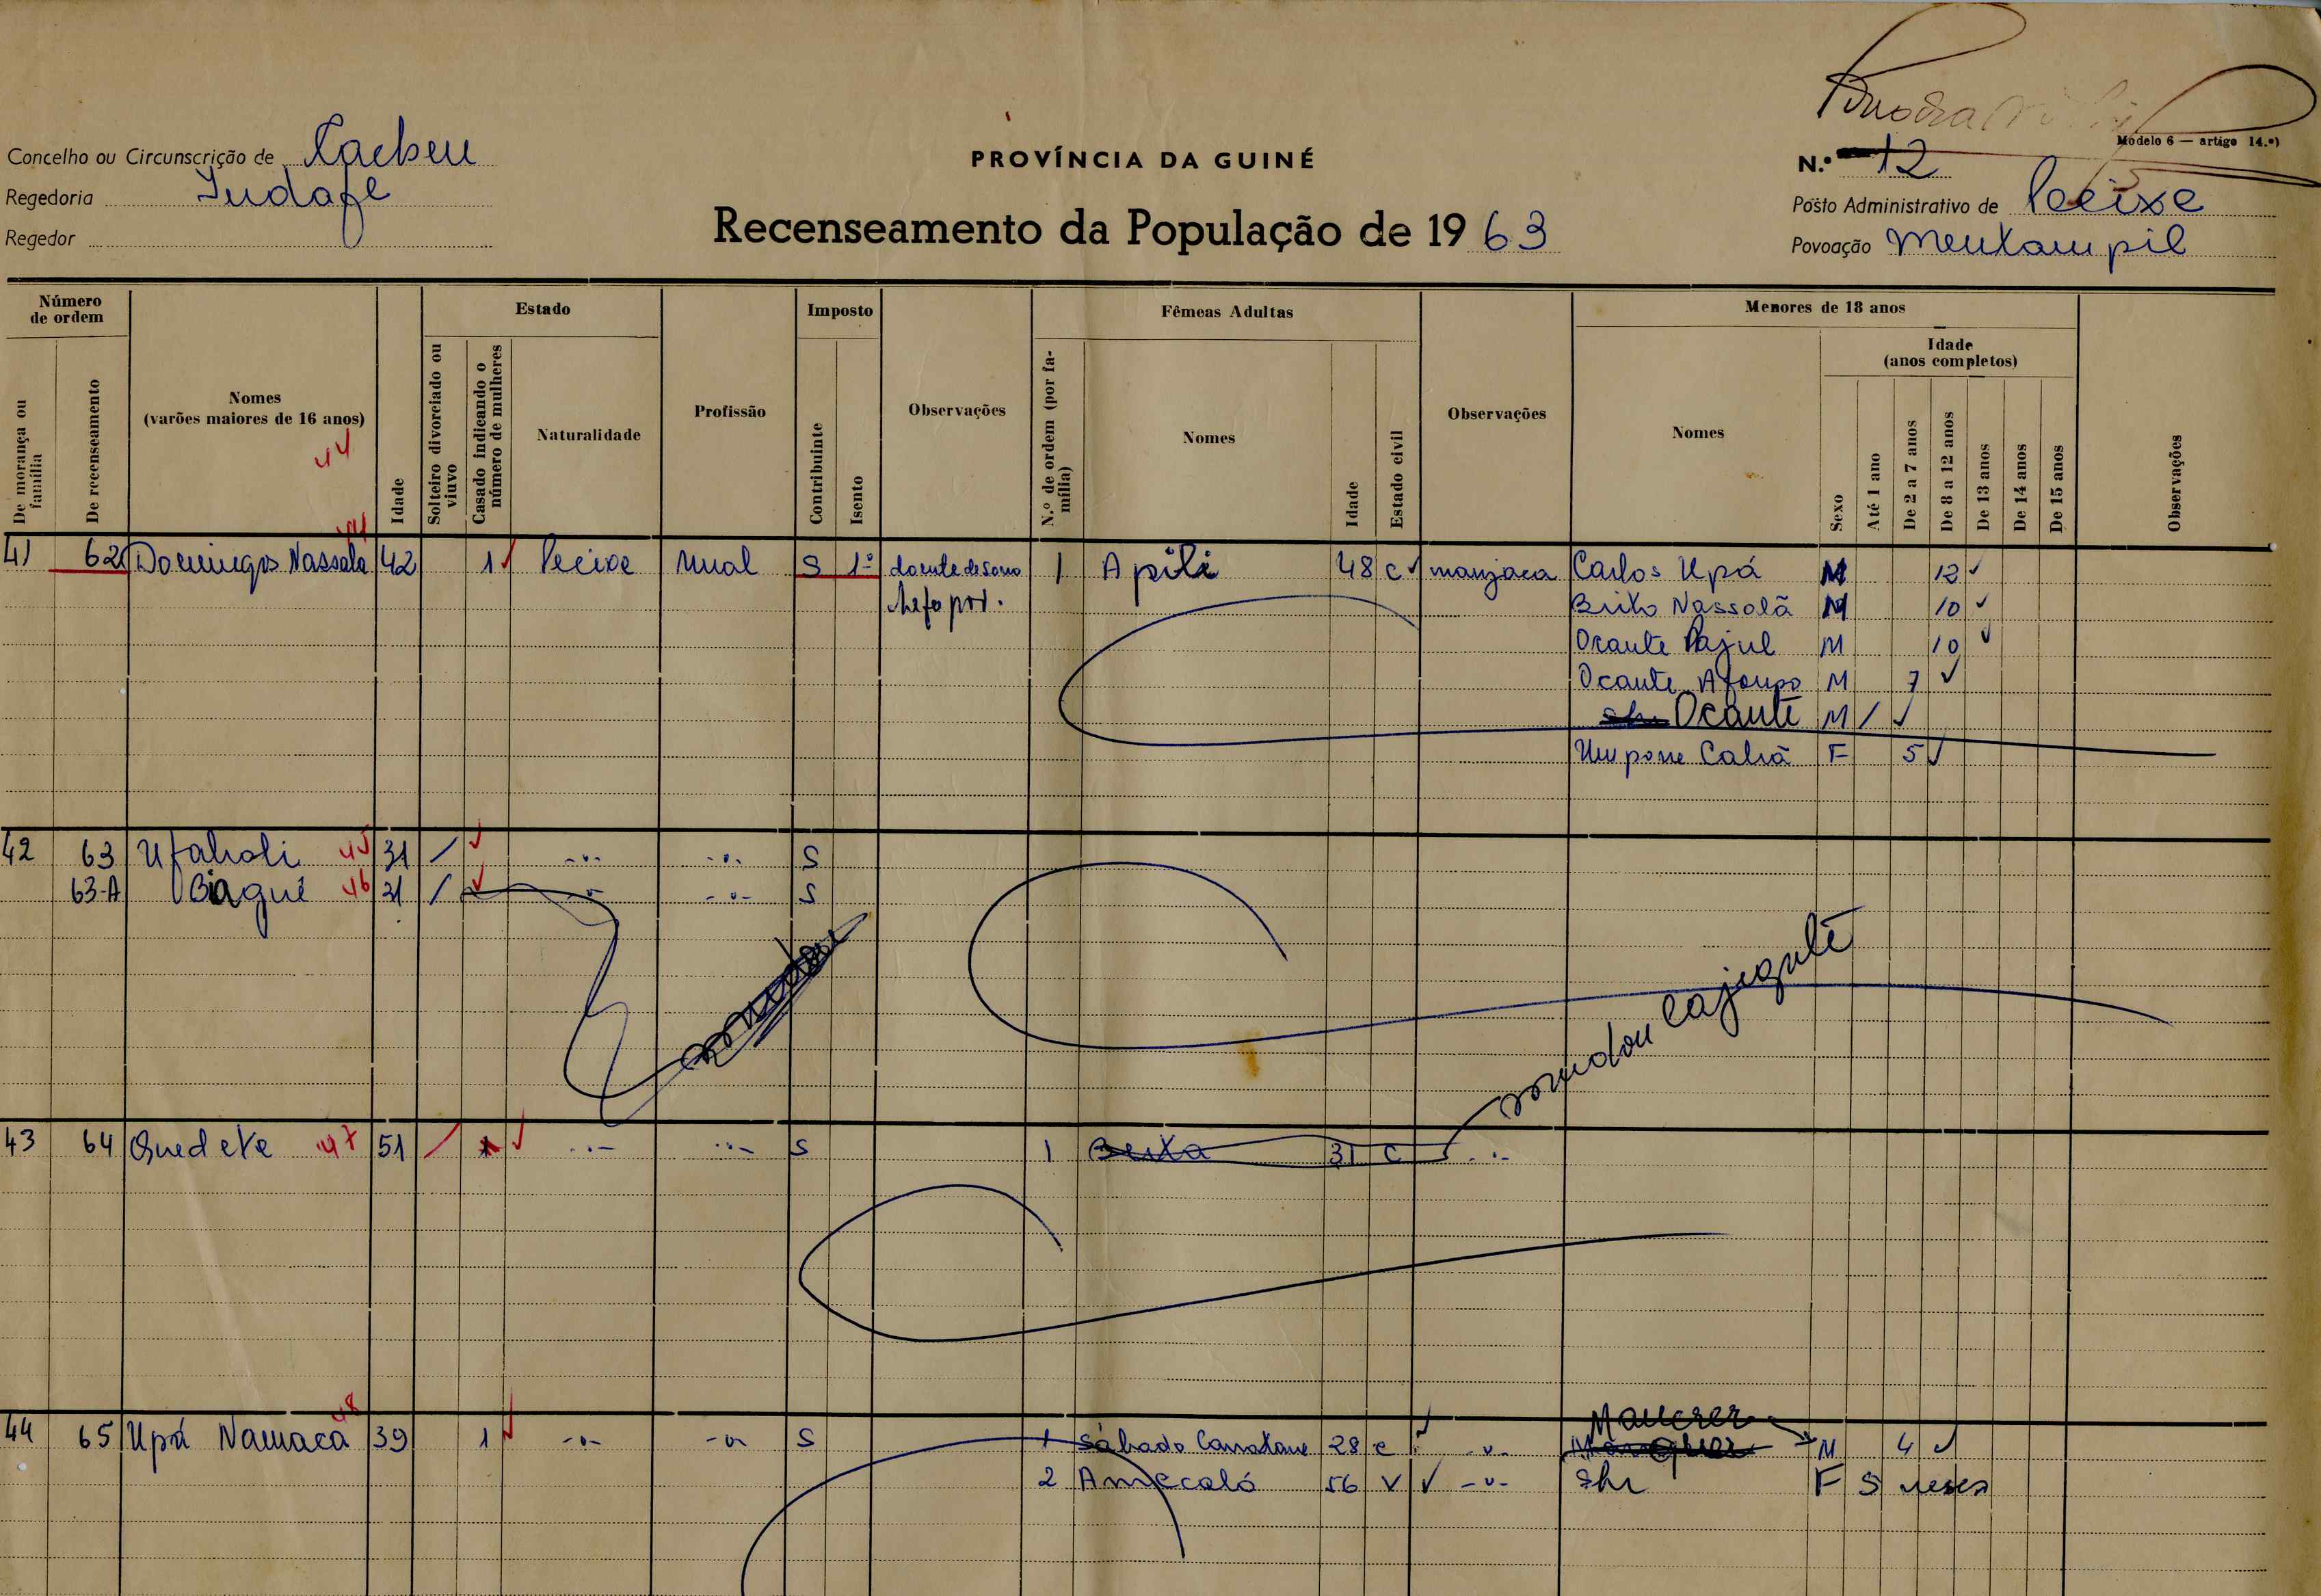 Modelo 6 — artigo 14.º)
Concelho ou Circunscrição de Cacheu
PROVÍNCIA DA GUINÉ
N.º 12
Regedoria
Posto Administrativo de Pecixe
Recenseamento da População de 1963
Regedor
Povoação
Número de ordem
De morança ou família
De recenseamento
Nomes
(varões maiores de 16 anos)
44
Idade
Estado
Solteiro divorciado ou viuvo
Casado indicando o número de mulheres
Naturalidade
Profissão
Imposto
Contribuinte
Isento
Observações
Fêmeas Adultas
N.º de ordem (por família)
Nomes
Idade
Estado civil
Observações
Menores de 18 anos
Nomes
Sexo
Idade
(anos completos)
Até 1 ano
De 2 a 7 anos
De 8 a 12 anos
De 13 anos
De 14 anos
De 15 anos
Observações
41 62 Domingos Nassala 42 1 Pecixe rural S 1º doente de sono 1 Apili 48 c manjaca Carlos Upá M 12
Brito Nassolã M 10
Ocante M 10
Ocante Afonso M 7
Ocante M /
F 5
42 63 Utaholi 45 31 / -"- -"- S
63-A Biagué 46 31 / -"- -"- S
mudou
43 64 Quedete 47 51 / -"- -"- S 1 31 c -"-
48
44 65 Upá Namaca 39 1 -"- -"- S 1 Sábado 28 c -"- M 4
2 Amecaló 56 V -"- F 5 meses